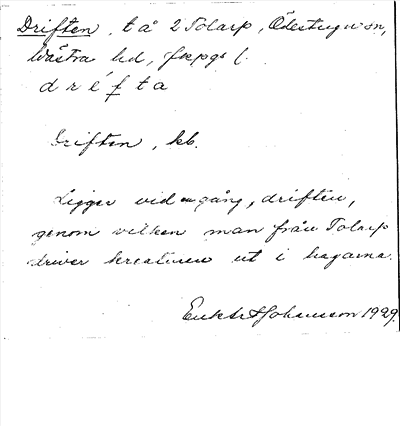 Driften, t å 2 Tolarp, Ödestugu sn,
Västra hd,
dréfta
Driften, kb.
Ligger vid en gång, driften,
genom vilken man från Tolarp
driver kreaturen ut i hagarna.
Johansson 1929.